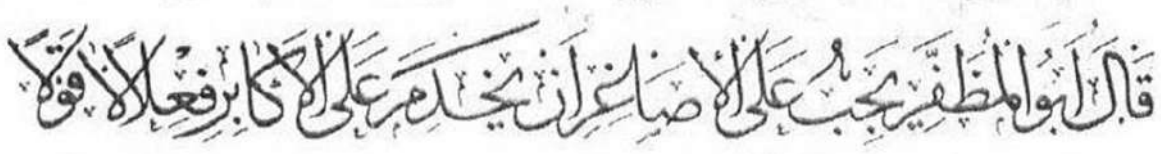 قَالَ اَبُو الْمُظَفَّرِ يَجِبُ عَلَى الْاَصَاغِرِ اَنْ يَخْدَمَ عَلَى الْاَكَابِرِ فِعْلًا لَا قَوْلًا